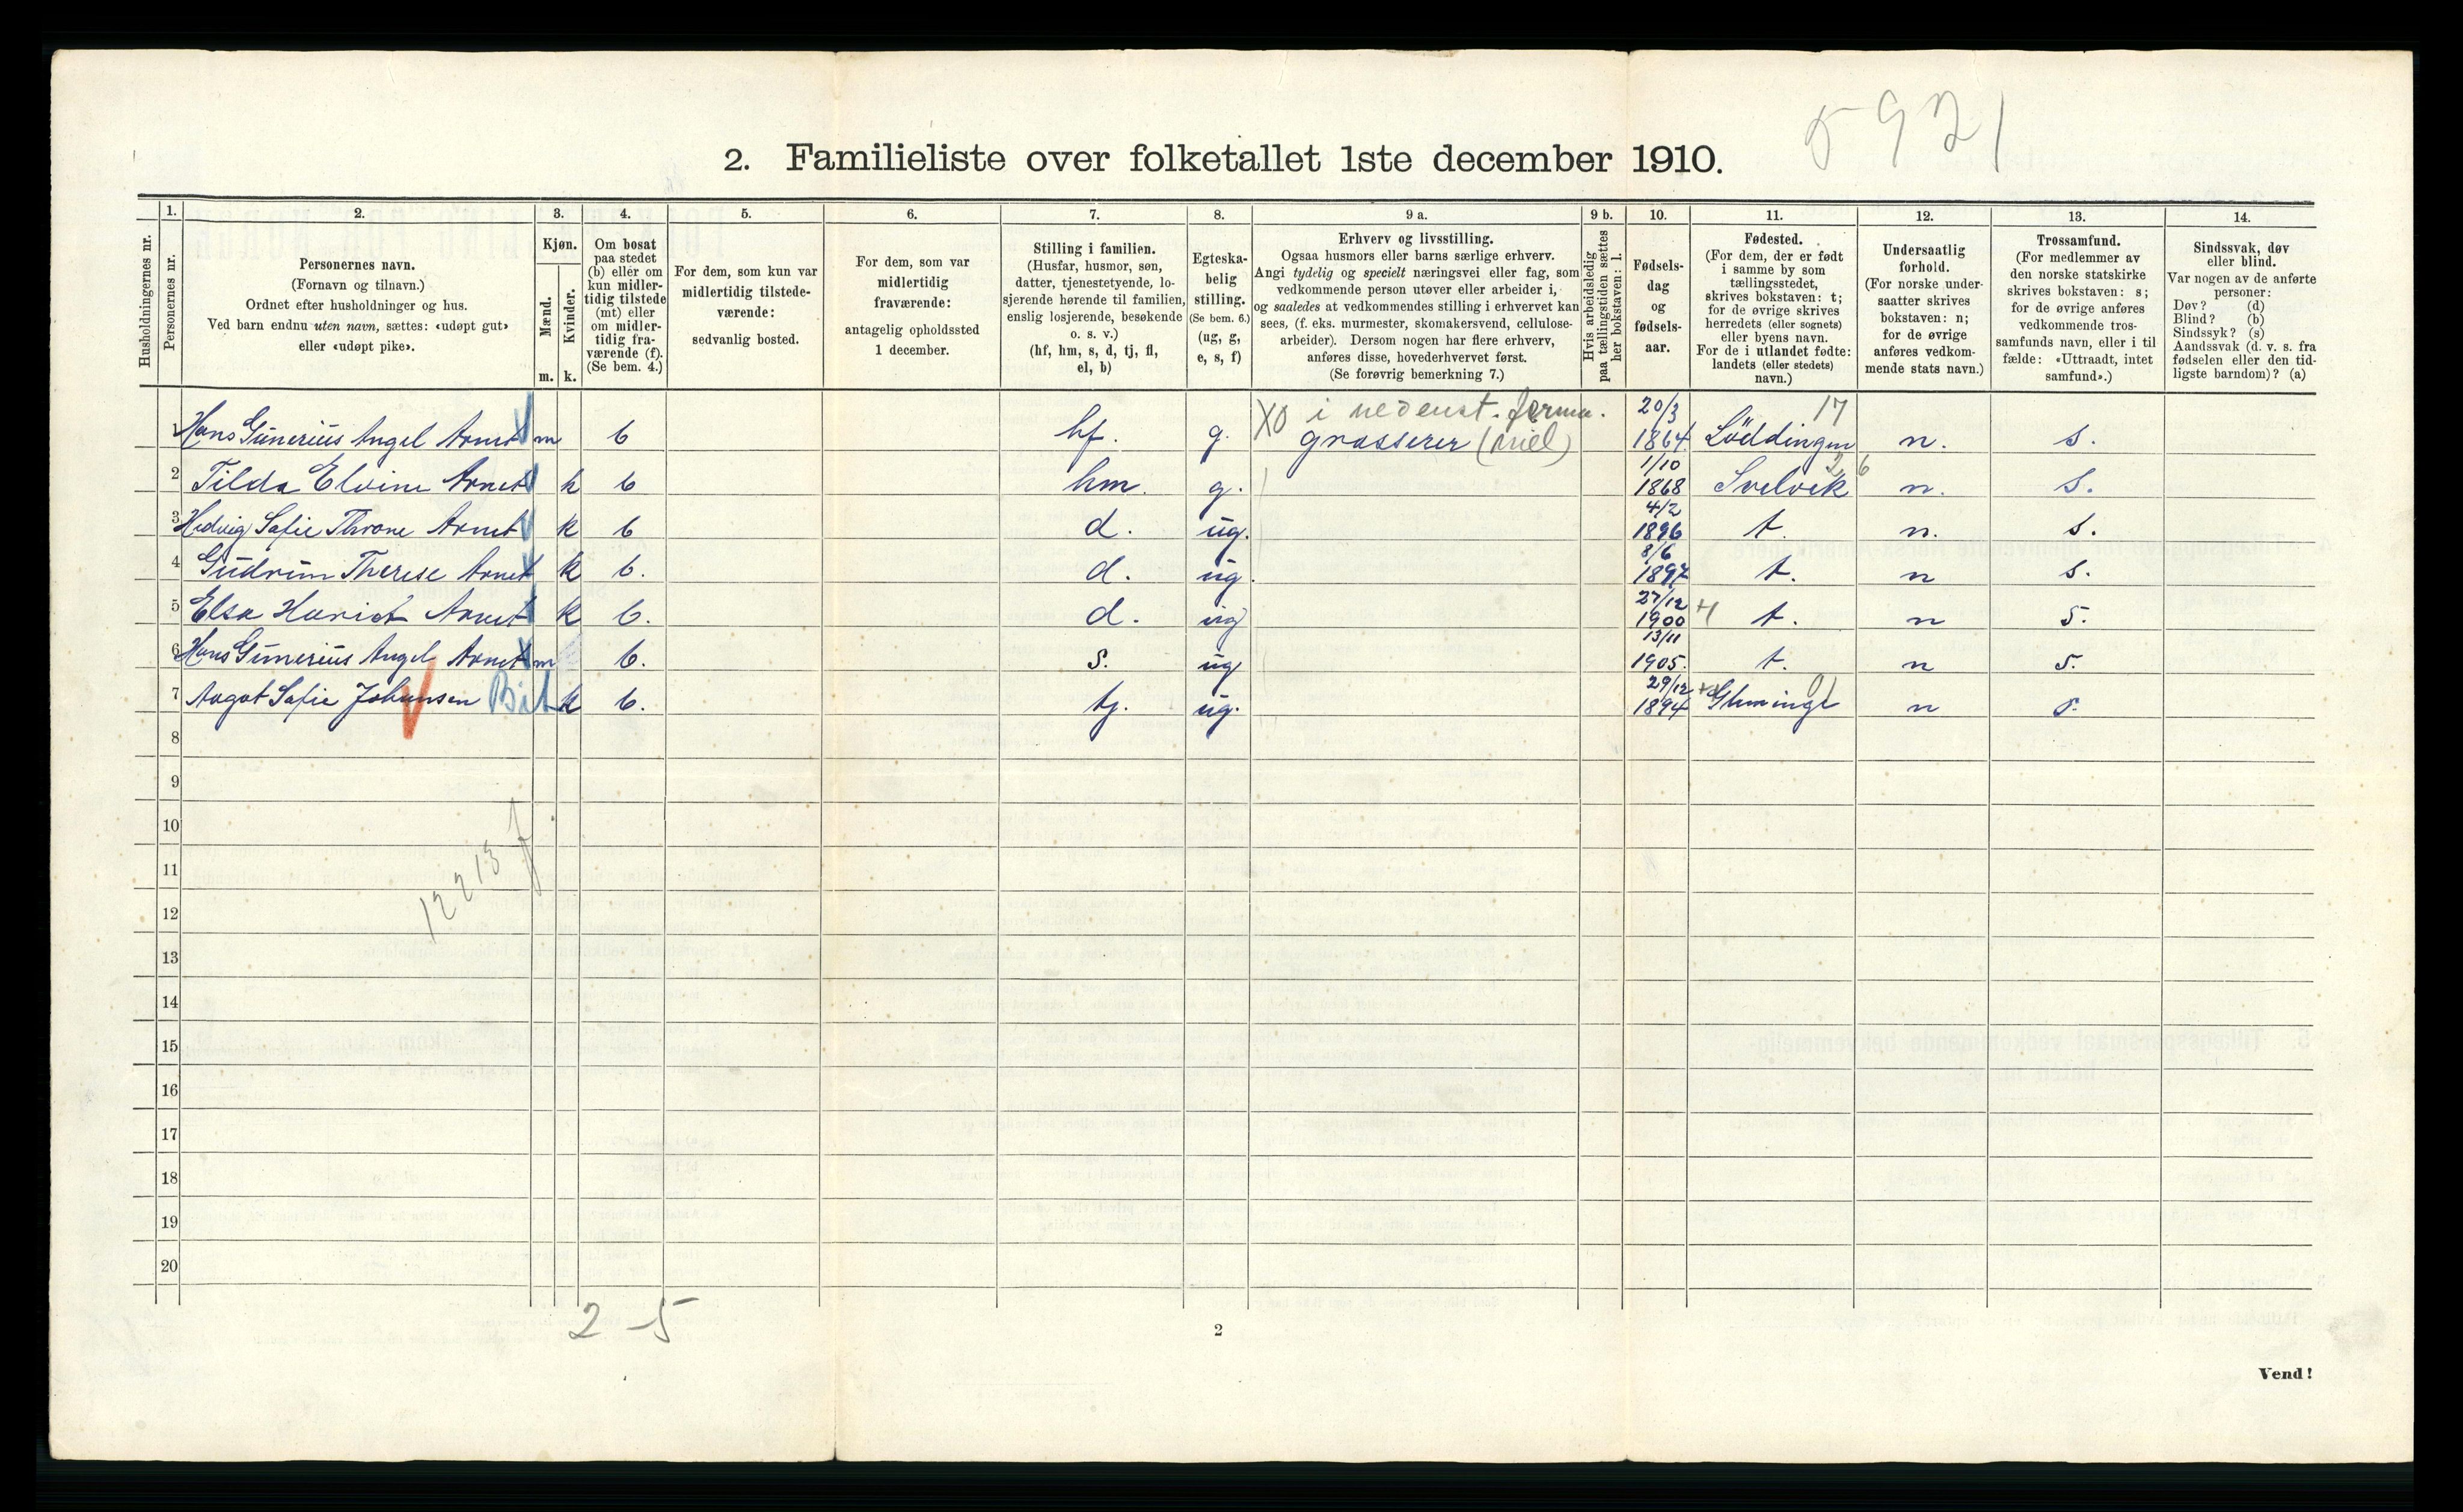 5921
2. Familieliste over folketallet 1ste december 1910.
Husholdningernes nr.
1.
Personernes nr.
2.
Personernes navn.
(Fornavn og tilnavn.)
Ordnet efter husholdninger og hus.
Ved barn endnu uten navn, sættes: «udøpt gut»
eller «udøpt pike».
3.
Kjøn.
Mænd.
Kvinder.
m. k.
4.
Om bosat
paa stedet
(b) eller om
kun midler-
tidig tilstede
(mt) eller
om midler-
tidig fra-
værende (f).
(Se bem. 4.)
5.
For dem, som kun var
midlertidig tilstede-
værende:
sedvanlig bosted.
6.
For dem, som var
midlertidig
fraværende:
antagelig opholdssted
1 december.
7.
Stilling i familien.
(Husfar, husmor, søn,
datter, tjenestetyende, lo-
sjerende hørende til familien,
enslig losjerende, besøkende
o. s. v.)
(hf, hm, s, d, tj, fl,
el, b)
8.
Egteska-
belig
stilling.
(Se bem. 6.)
(ug, g,
e, s, f)
9 a.
Erhverv og livsstilling.
Ogsaa husmors eller barns særlige erhverv.
Angi tydelig og specielt næringsvei eller fag, som
vedkommende person utøver eller arbeider i,
og saaledes at vedkommendes stilling i erhvervet kan
sees, (f. eks. murmester, skomakersvend, cellulose-
arbeider). Dersom nogen har flere erhverv,
anføres disse, hovederhvervet først.
(Se forøvrig bemerkning 7.)
9 b.
Hvis arbeidsledig
paa tællingstiden sættes
her bokstaven: l.
10.
Fødsels-
dag
og
fødsels-
aar.
11.
Fødested.
(For dem, der er født
i samme by som
tællingsstedet,
skrives bokstaven: t;
for de øvrige skrives
herredets (eller sognets)
eller byens navn.
For de i utlandet fødte:
landets (eller stedets)
navn.)
12.
Undersaatlig
forhold.
(For norske under-
saatter skrives
bokstaven: n;
for de øvrige
anføres vedkom-
mende stats navn.)
13.
Trossamfund.
(For medlemmer av
den norske statskirke
skrives bokstaven: s;
for de øvrige anføres
vedkommende tros-
samfunds navn, eller i til
fælde: «Uttraadt, intet
samfund».)
14.
Sindssvak, døv
eller blind.
Var nogen av de anførte
personer:
Døv? (d)
Blind? (b)
Sindssyk? (s)
Aandssvak (d. v. s. fra
fødselen eller den tid-
ligste barndom)? (a)
XO i nedenst. firma. 20/3 17
1 Hans Günerius Angel Arnet m b hf. g. grosserer 1864 Löddingen n. s.
1/10 26
2 Tilda Elvine Arnet k b hm. g. 1868 Svelvik n. s.
4/2
3 Hedvig Sofie Throne Arnet k b d. ug. 1896 t. n. s.
8/6
4 Gudrun Therese Arnet k b. d. ug. 1897 t. n s.
27/12
5 Elsa Harriet Arnet k b. d. ug 1900 t. n s.
13/11
6 Hans Günerius Angel Arnet m b. s. ug 1905. t. n s.
29/12
7 Aagot Sofie Johansen k b. tj. ug. 1894 n s.
8
9
10
11
12213
12
13
14
15
16
17
18
19
20
2-5
2
Vend!